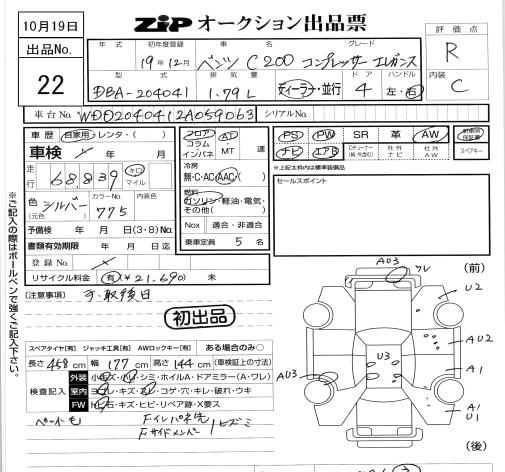 10月19日
ZIP オークション出品票
出品No.
22
年式 初年度登録 車名 グレード
19年12月 ベンツ C200 コンプレッサー エレガンス
評価点
R
型式 排気量 ディーラー・並行 ドア ハンドル
DBA-204041 1.79L 4 左・右
内装
C
車台No. WDD2040412A059063 シリアルNo.
車歴 自家用・レンタ・( )
車検 年 月
走行 68,839 キロ マイル
色(元色) シルバー カラーNo. 775 内装色
予備検 年 月 日(3・8)No.
書類有効期限 年 月 日迄
登録No.
リサイクル料金 有(¥21.690) 未
フロア コラム インパネ AT・MT 速
冷房
無・C・AC・AAC・( )
燃料
ガソリン・軽油・電気・その他( )
Nox 適合・非適合
乗車定員 5 名
PS PW SR 革 AW 新車時保証書
ナビ エアB Dチューナー(純・外含む) 社外ナビ 社外AW スペアキー
※上記太枠内は標準装備品
セールスポイント
(注意事項) 予.取後日
初出品
スペアタイヤ[有] ジャッキ工具[有] AWロックキー[有] ある場合のみ○
長さ 458cm 幅 177cm 高さ 144cm (車検証上の寸法)
検査記入
外装 小キズ・小凹・シミ・ホイルA・ドアミラー(A・ワレ)
室内 ヨゴレ・キズ・スレ・コゲ・穴・キレ・破れ・ウキ
FW 飛石・キズ・ヒビ・リペア跡・X要ス
ペットモ Fインパネ先
Fサイドメンバー ヒズミ
※ご記入の際はボールペンで強くご記入下さい。
AU3 ワレ (前)
U2
AU2
U3
A1
AU3
A1
U1
(後)